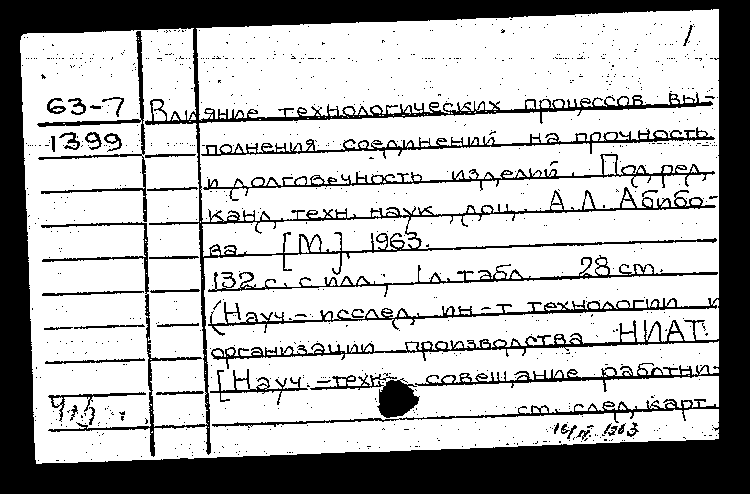 1
63-7 Влияние технологических процессов вы-
1399 полнения соединений на прочность
и долговечность изделий. Под ред.
канд. техн. наук, доц. А.Л. Абибо-
ва. [М.], 1963.
132 с. с илл.; 1 л. табл. 28 см.
(Науч.- исслед. ин-т технологии и
организации производства НИАТ.
[Науч.-техн. совещание работни-
см. след. карт.